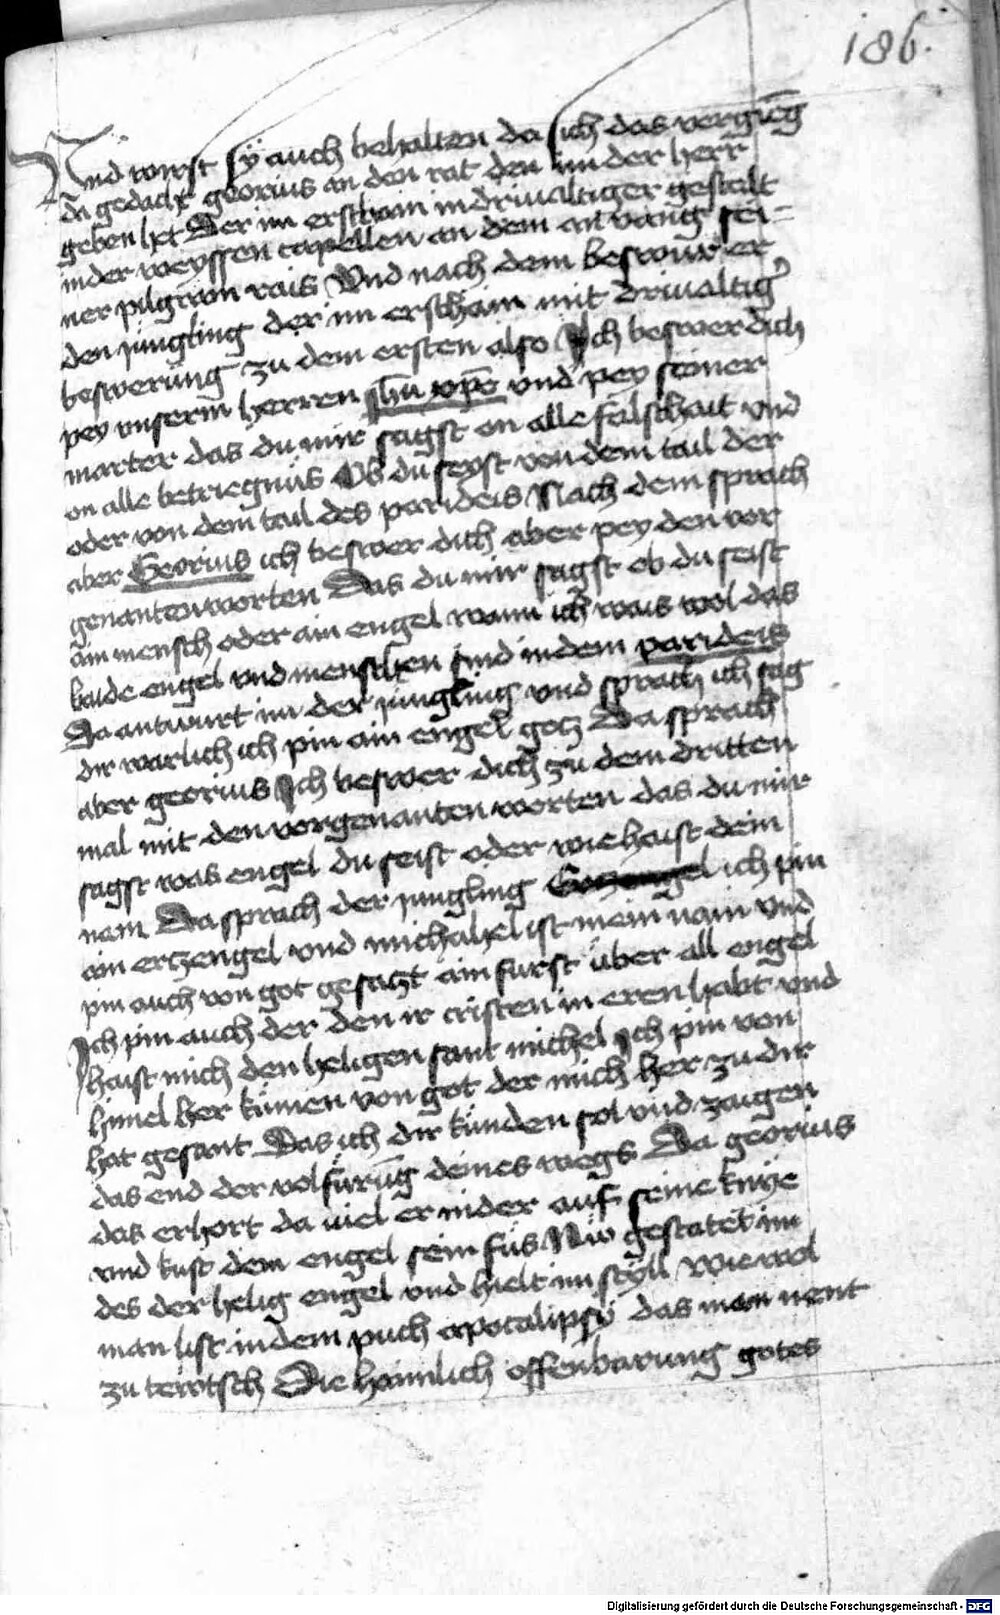 186.
Und wirst sy auch behalten da sich das vergieng
da gedacht georius an den rat den im der herr
geben het Der im erschain in drivaltiger gestalt
in der weyssen capellen an dem an vang sei=
ner pilgrim rais Und nach dem beswur er
den jungling der im erschain mit drivaltiger
beswerung zu dem ersten also Ich beswer dich
pey unserm herren jhu xpo und pey seiner
marter das du mir sagst on alle falschait und
on alle betriegnus Ob du seyst von dem tail der
oder von dem tail des parideis Nach dem sprach
aber Georius ich beswer dich aber pey den vor
genanten worten Das du mir sagst ob du seist
ain mensch oder ain engel wann ich wais wol das
baide engel und menschen sind in dem parideis
Da antwurt im der jungling und sprach ich sag
dir warlich ich pin ain engel gotz Da sprach
aber georius Ich beswer dich zu dem dritten
mal mit den vorgenanten worten das du mir
sagst was engel du seist oder wie haist dein
nam Da sprach der jungling ich pin
ain ertzengel und michahel ist mein nam und
pin auch von got gesatzt ain furst über all engel
Ich pin auch der den ir cristen in eren habt und
haist mich den heligen sant michel Ich pin von
himel her kumen von got der mich her zu dir
hat gesant Das ich dir kunden sol und zaigen
das end der volfurung deines wegs Da georius
das erhort da viel er nider auf seine knye
und kust dem engel sein fus Nu gestatet im
des der helig engel und hielt im styll wie wol
man list in dem puch apocalipsy das man nent
zu tewtsch Die haimlich offenbarung gotes
Digitalisierung gefördert durch die Deutsche Forschungsgemeinschaft - DFG